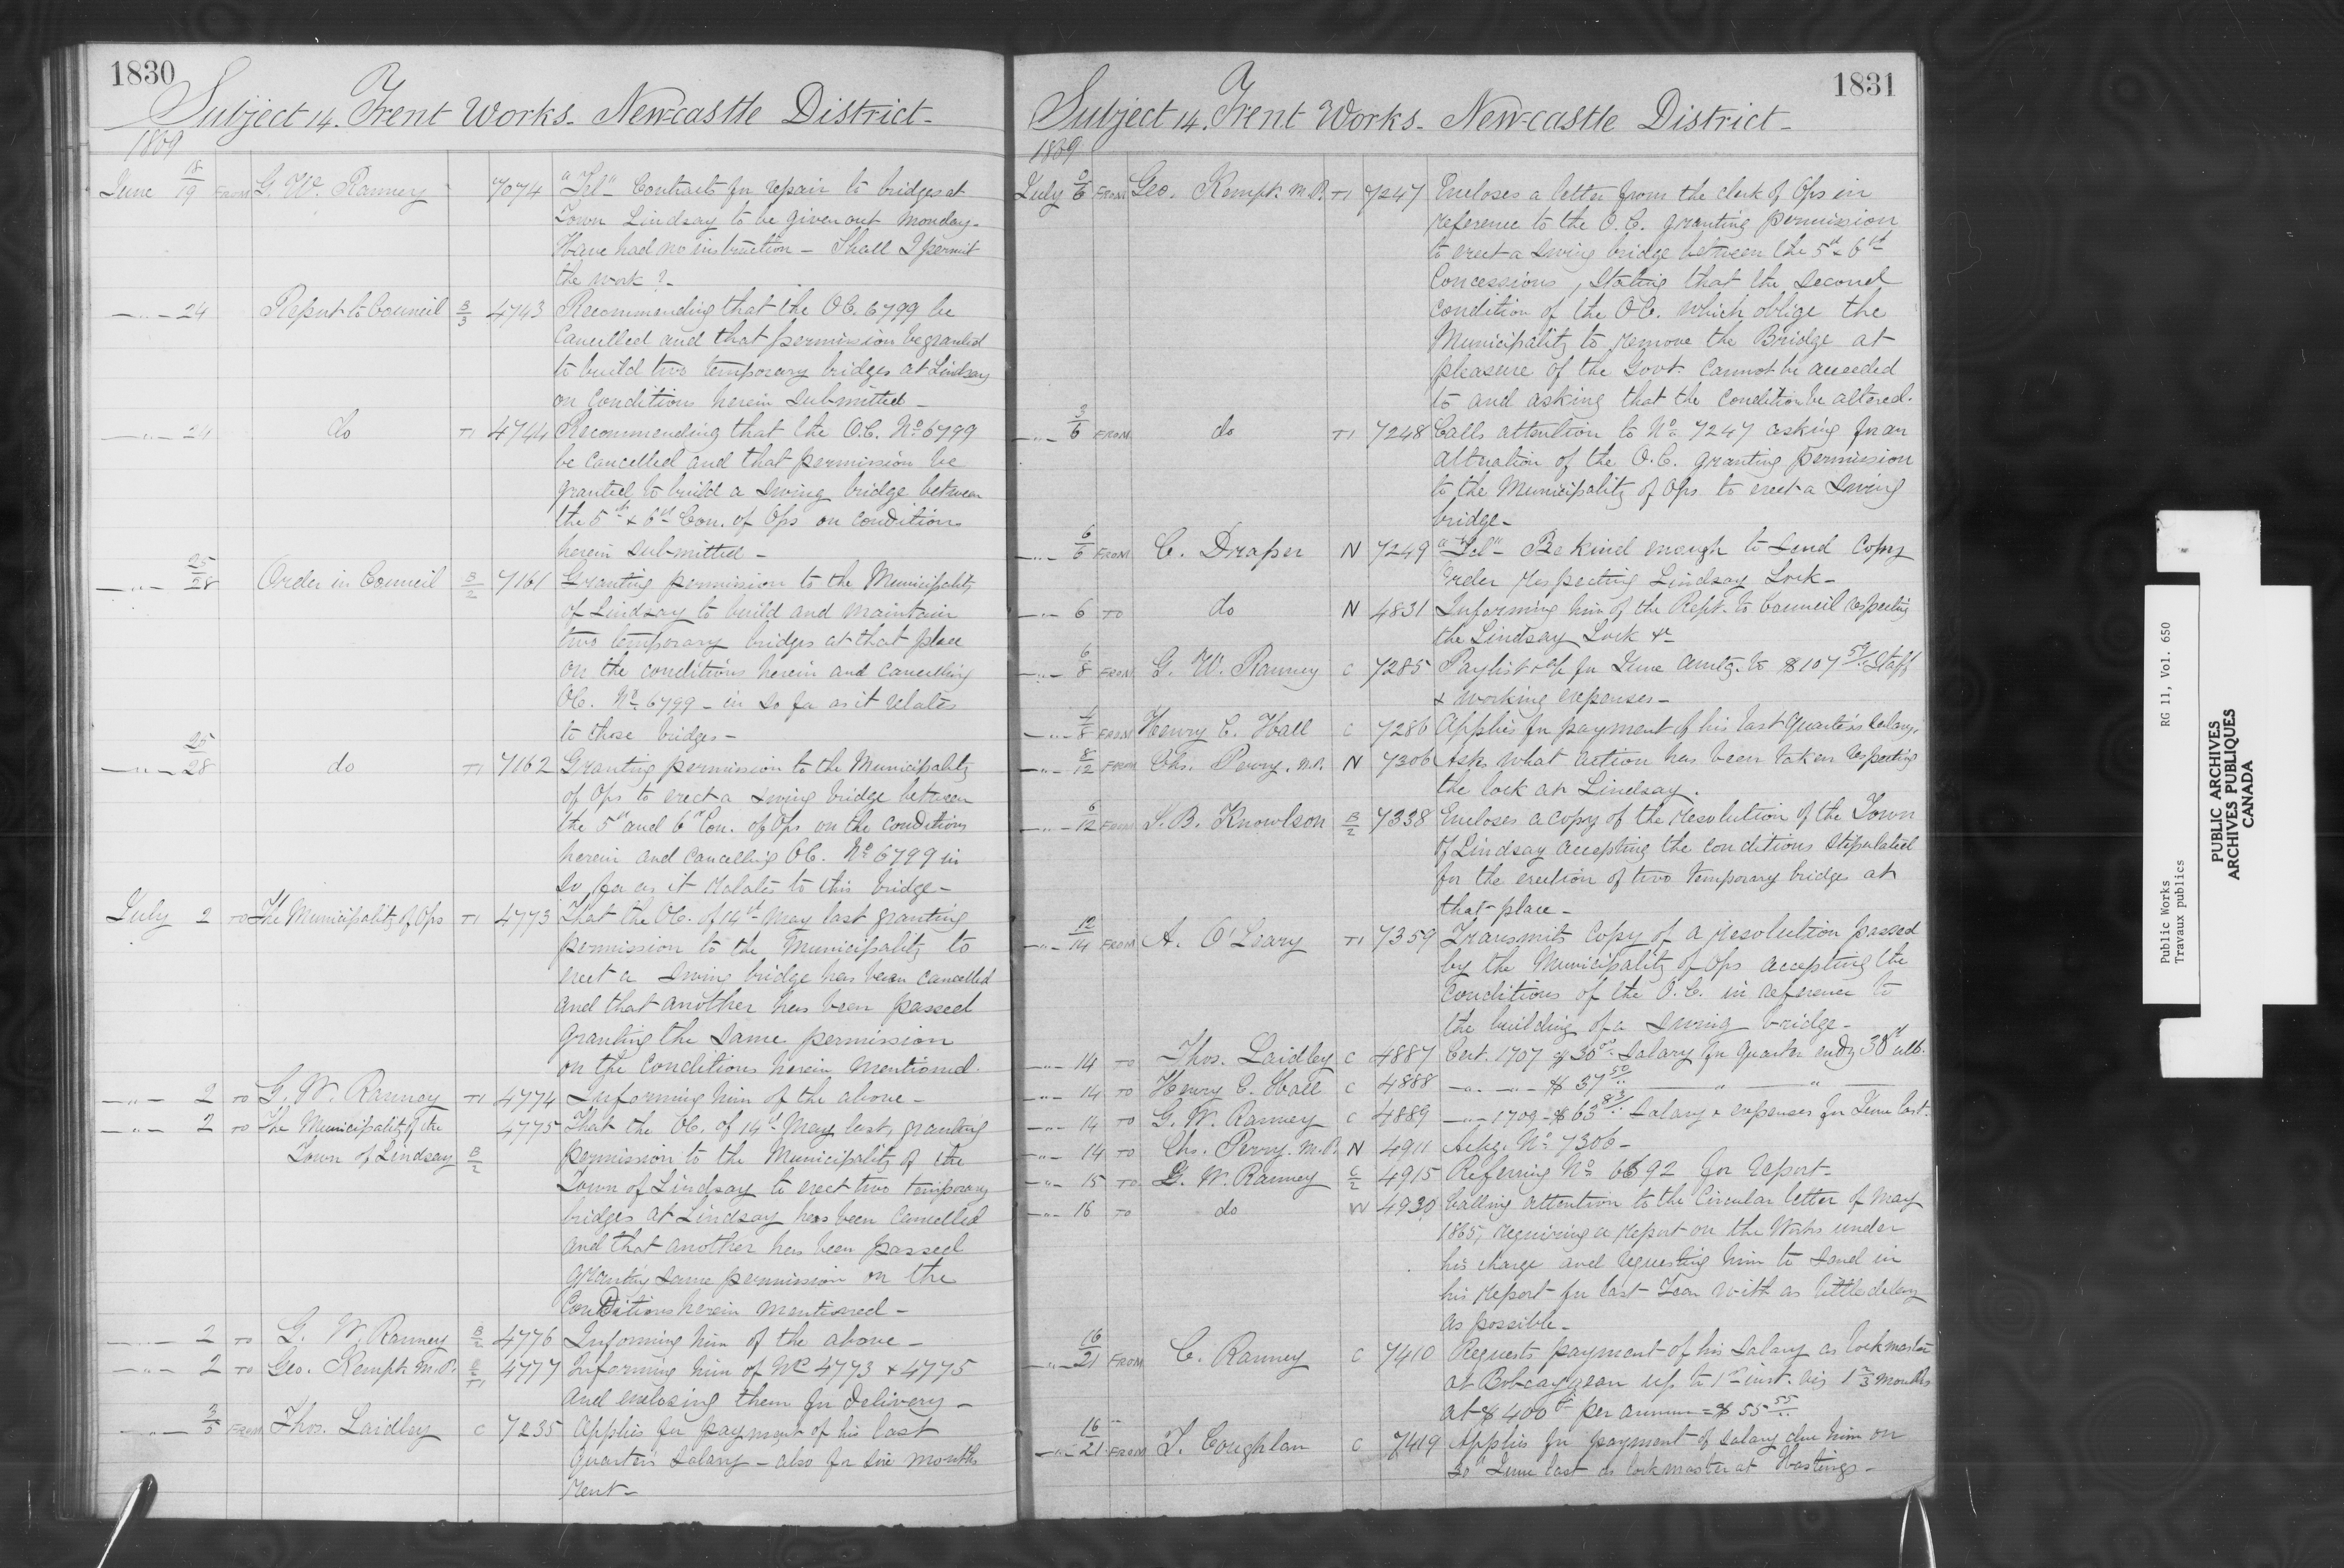 1830
Subject 14. Trent Works - Newcastle District -
1869
June 18/19 FROM G. W. Ranney 7074 "Tel" Contracts for repair to bridges at
Town Lindsay to be given out Monday -
Have had no instruction - Shall I permit
the work? -
-"- 24 Report to Council B/3 4743 Recommending that the OC. 6799 be
Cancelled and that permission be granted
to build two temporary bridges at Lindsay
on Conditions herein submitted -
-"- 24 do T1 4744 Recommending that the O.C. No 6799
be cancelled and that permission be
granted to build a swing bridge between
the 5th & 6th Con. of Ops on conditions
herein submitted -
-"- 25/28 Order in Council B/2 7161 Granting permission to the Municipality
of Lindsay to build and maintain
two temporary bridges at that place
on the conditions herein and cancelling
OC. No 6799 - in so far as it relates
to those bridges -
-"- 25/28 do T1 7162 Granting permission to the Municipality
of Ops to erect a swing bridge between
the 5th and 6th Con. of Ops on the conditions
herein and cancelling OC. No 6799 in
so far as it relates to this bridge -
July 2 TO The Municipality of Ops T1 4773 That the OC. of 14th May last granting
permission to the Municipality to
erect a swing bridge has been cancelled
and that another has been passed
granting the same permission
on the Conditions herein mentioned.
-"- 2 TO G. W. Ranney T1 4774 Informing him of the above -
-"- 2 TO The Municipality of the 4775 That the OC. of 14th May last, granting
Town of Lindsay B/2 permission to the Municipality of the
Town of Lindsay to erect two temporary
bridges at Lindsay has been cancelled
and that another has been passed
granting same permission on the
Conditions herein mentioned -
-"- 2 TO G. W. Ranney B/2 4776 Informing him of the above -
-"- 2 TO Geo. Kempt. M.P. T1 4777 Informing him of Nos 4773 & 4775
and enclosing them for delivery -
-"- 3/5 FROM Thos. Laidley C 7235 Applies for payment of his last
quarter's salary - also for six months
rent -
1831
Subject 14. Trent Works - Newcastle District -
1869
July 2/6 FROM Geo. Kempt. M.P. T1 7247 Encloses a letter from the clerk of Ops in
reference to the O.C. granting permission
to erect a swing bridge between the 5th & 6th
Concessions, stating that the second
condition of the OC. which oblige the
Municipality to remove the Bridge at
pleasure of the Govt. Cannot be acceeded
to and asking that the condition be altered.
-"- 3/6 FROM do T1 7248 Calls attention to No 7247 asking for an
alteration of the O.C. granting permission
to the Municipality of Ops to erect a swing
bridge -
-"- 6/6 FROM C. Draper N 7249 "Tel" - Be kind enough to send Copy
Order respecting Lindsay Lock -
-"- 6 TO do N 4831 Informing him of the Rept. to Council respecting
the Lindsay Lock &c
-"- 6/8 FROM G. W. Ranney C 7285 Paylist &c for June amtg. to $107 59/.. Staff
& working expenses -
-"- 4/8 FROM Henry C. Hall C 7286 Applies for payment of his last Quarter's salary.
-"- 8/12 FROM Chs. Perry. M.P. N 7306 Asks what action has been taken respecting
the lock at Lindsay.
-"- 6/12 FROM S. B. Knowlson B/2 7338 Encloses a copy of the resolution of the Town
of Lindsay accepting the conditions stipulated
for the erection of two temporary bridges at
that place -
-"- 12/14 FROM A. O'Leary T1 7359 Transmits Copy of a resolution passed
by the Municipality of Ops accepting the
conditions of the O.C. in reference to
the building of a swing bridge -
-"- 14 TO Thos. Laidley C 4887 Cert. 1707 of 30 00 salary for quarter endg 30th ulto.
-"- 14 TO Henry C. Hall C 4888 -"- -"- $ 37 50/.. " "
-"- 14 TO G. W. Ranney C 4889 -"- 1709 - $ 63 83/.. Salary & expenses for June last.
-"- 14 TO Chs. Perry. M.P. N 4911 Ackg. No 7306 -
-"- 15 TO G. W. Ranney C/2 4915 Referring No 6692 for report -
-"- 16 TO do W 4930 Calling attention to the Circular letter of May
1865, requiring a report on the Works under
his charge and requesting him to send in
his report for last Year with as little delay
as possible -
-"- 16/21 FROM C. Ranney C 7410 Requests payment of his salary as lockmaster
at Bobcaygeon up to 1st inst. vis 1 2/3 months
at $ 400 per annum = $ 55 55/..
-"- 16/21 FROM T. Coughlan C 7419 Applies for payment of salary due him on
30th June last as lockmaster at Hastings -
Public Works RG 11, Vol. 650
Travaux publics
PUBLIC ARCHIVES
ARCHIVES PUBLIQUES
CANADA